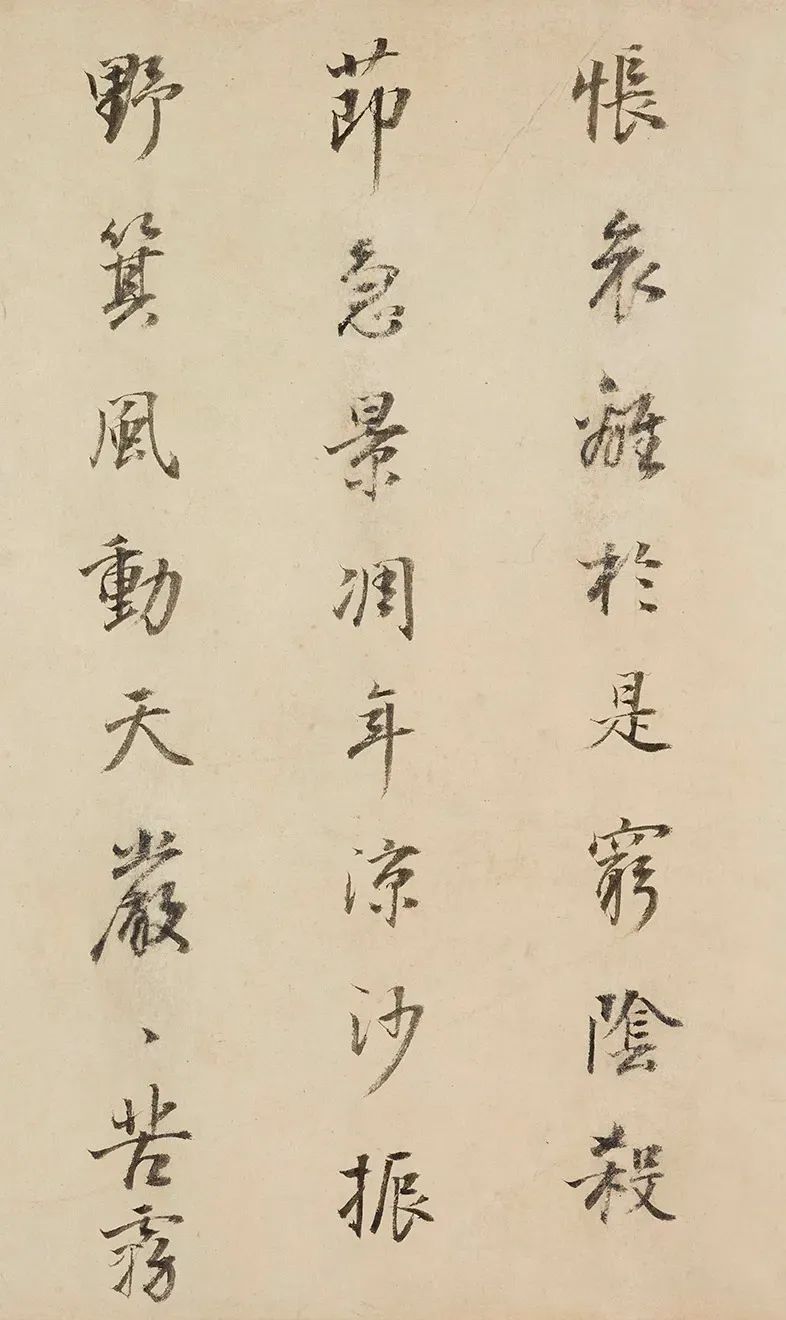 悵哀離於是窮陰殺
節急景凋年涼沙振
野箕風動天嚴〻苦霧